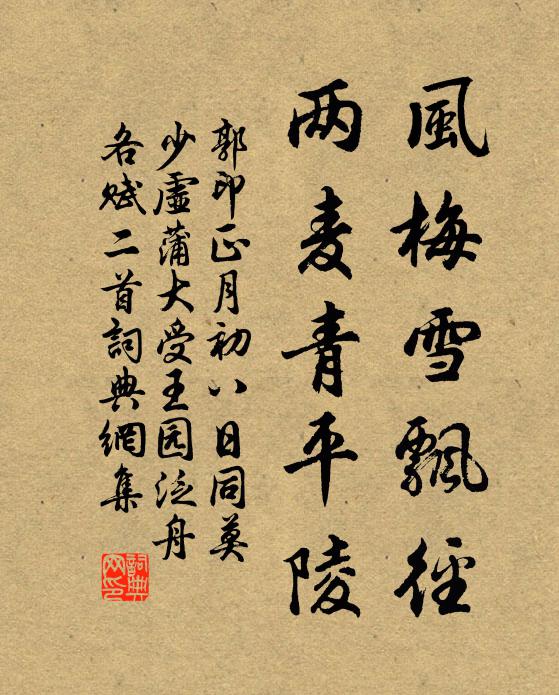 風梅雪飄徑
两麦青平陵
郭印正月初八日同莫
少虛蒲大受王园泛舟
各赋二首詞典網集
詞典网印